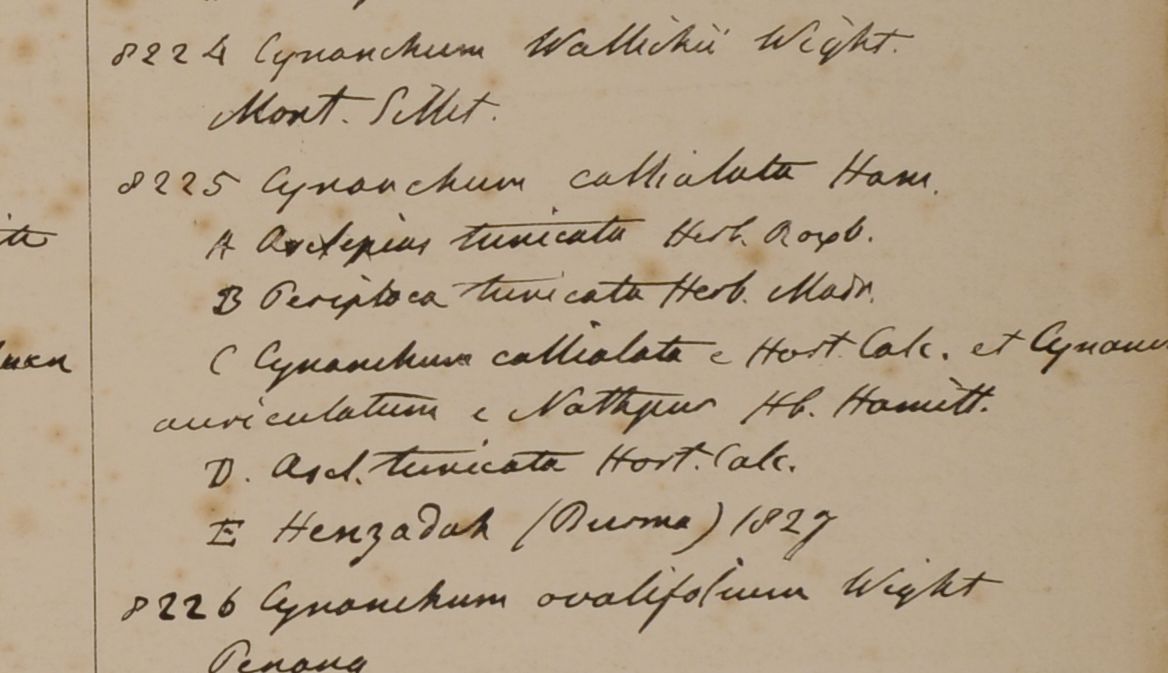 8224 Cynanchum Wallichii Wight.
Mont. Sillet.
8225 Cynanchum callialata Ham.
A Asclepias tunicata Herb. Roxb.
B Periploca tunicata Herb. Madr.
C Cynanchum callialata e Hort. Calc. et Cynanc
auriculatum e Nathpur Hb. Hamilt.
D. Ascl. tunicata Hort. Calc.
E Henzadah (Burma) 1827
8226 Cynanchum ovalifolium Wight
Penang